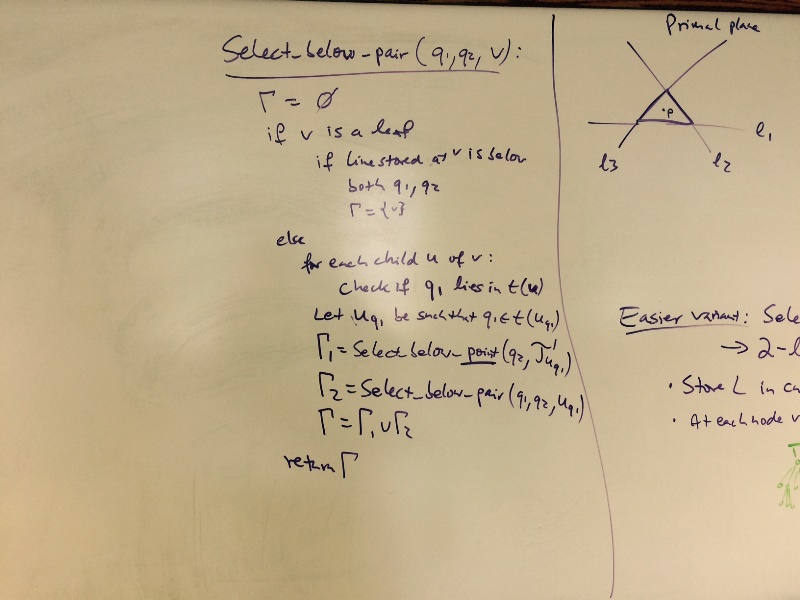 Select_below_pair (q1, q2, v):
Γ = ∅
if v is a leaf
if line stored at v is below
both q1, q2
Γ = {v}
else
for each child u of v:
check if q1 lies in t(u)
Let uq1 be such that q1 ∈ t(uq1)
Γ1 = Select_below_point (q2, T'uq1)
Γ2 = Select_below_pair (q1, q2, uq1)
Γ = Γ1 ∪ Γ2
return Γ
Primal plane
p
l1
l3
l2
Easier variant:
→ 2-l
· Store L in
· At each node v